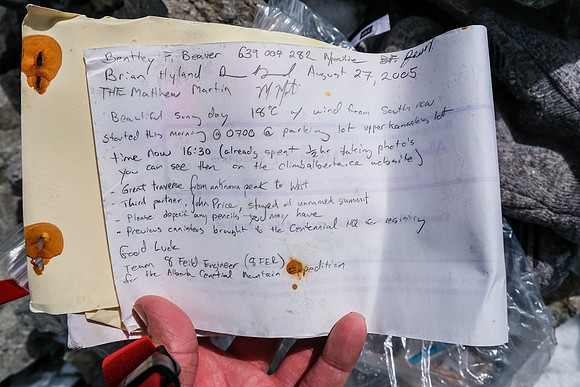 Bentley P. Beaver 639 004 282
Brian Hyland August 27, 2005
THE Matthew Martin
Beautiful sunny day 18°C w/ wind from South now
started this morning @ 0700 @ parking lot upper Kananaskis lot
time now 16:30 (already spent ½ hr taking photo's
you can see then on the climbalberta website)
- Great traverse from unknown peak to West
- Third partner, John Price, stayed at unnamed summit
- Please deposit any pencils you may have
- Previous canisters brought to the Centennial HQ for registry
Good Luck
Team 8 Feild Engineer (8 FER)
for the Alberta Centinal Mountain Expedition